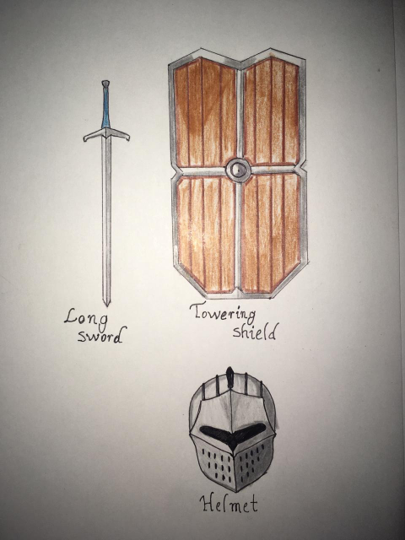 Long
sword
Towering
shield
Helmet